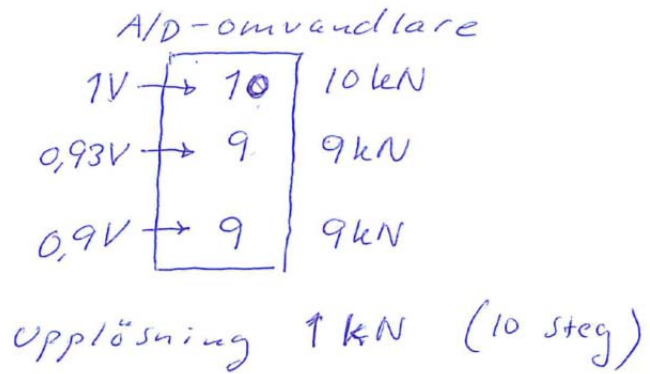 A/D-omvandlare
1V → 10 10 kN
0,93V → 9 9 kN
0,9V → 9 9 kN
Upplösning 1 kN (10 steg)